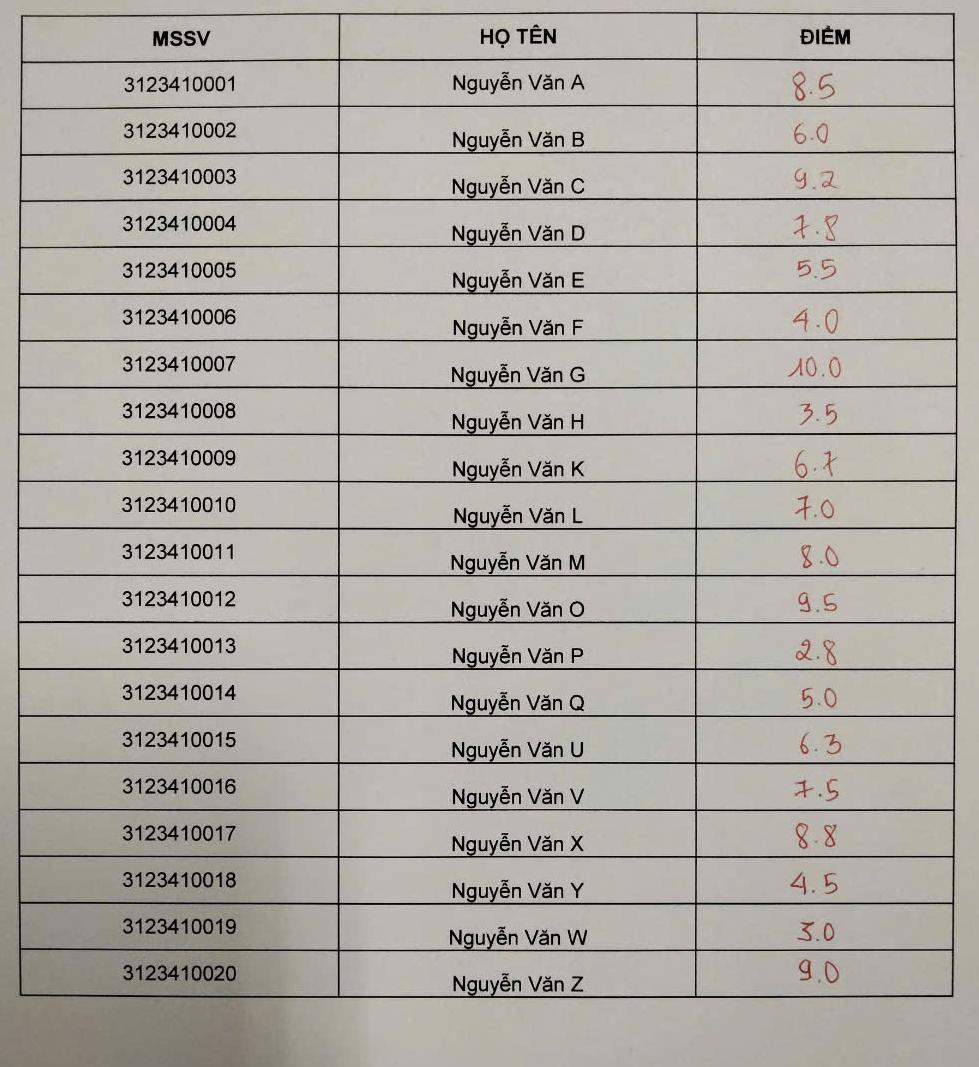 MSSV HỌ TÊN ĐIỂM
3123410001 Nguyễn Văn A 8.5
3123410002 Nguyễn Văn B 6.0
3123410003 Nguyễn Văn C 9.2
3123410004 Nguyễn Văn D 7.8
3123410005 Nguyễn Văn E 5.5
3123410006 Nguyễn Văn F 4.0
3123410007 Nguyễn Văn G 10.0
3123410008 Nguyễn Văn H 3.5
3123410009 Nguyễn Văn K 6.7
3123410010 Nguyễn Văn L 7.0
3123410011 Nguyễn Văn M 8.0
3123410012 Nguyễn Văn O 9.5
3123410013 Nguyễn Văn P 2.8
3123410014 Nguyễn Văn Q 5.0
3123410015 Nguyễn Văn U 6.3
3123410016 Nguyễn Văn V 7.5
3123410017 Nguyễn Văn X 8.8
3123410018 Nguyễn Văn Y 4.5
3123410019 Nguyễn Văn W 3.0
3123410020 Nguyễn Văn Z 9.0